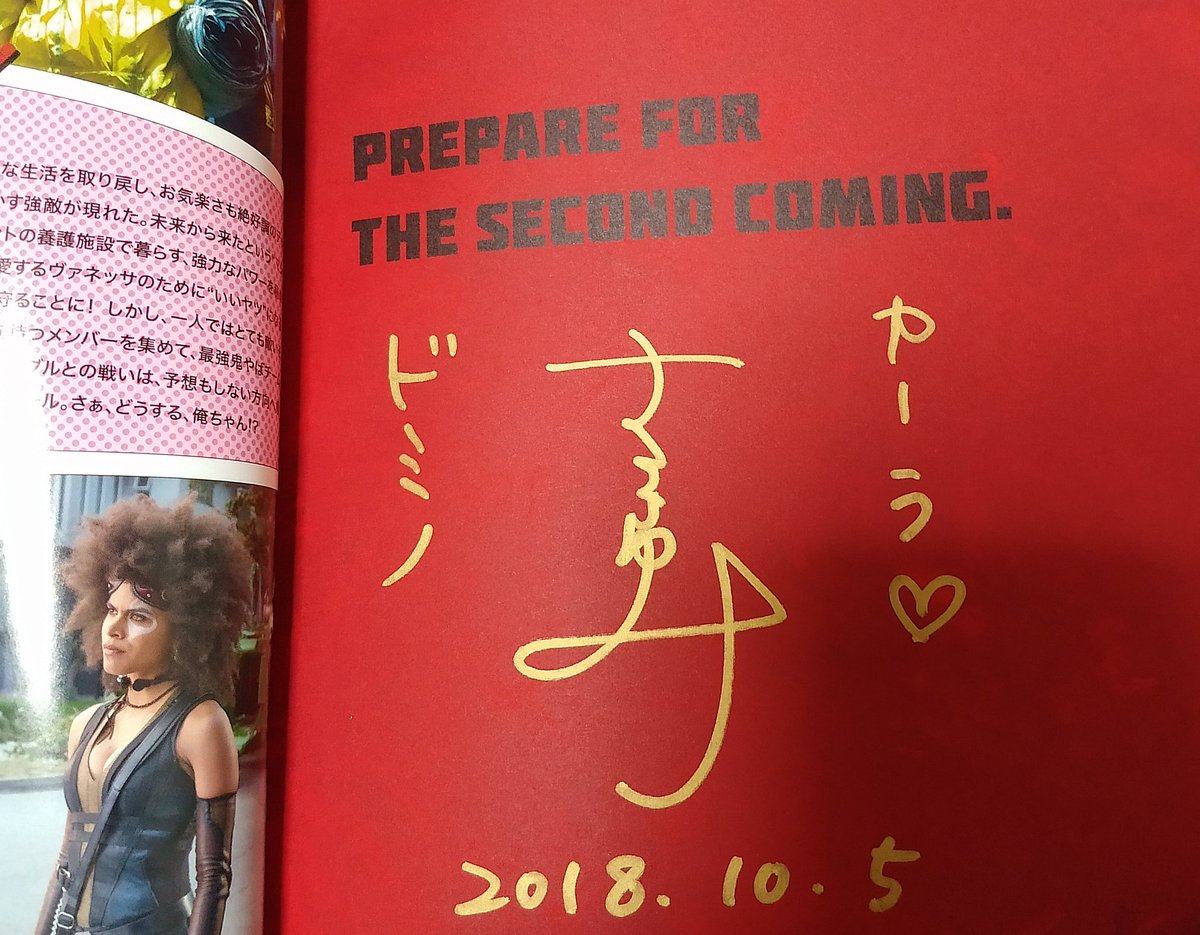 な生活を取り戻し、お気楽さも絶好調の
す強敵が現れた。未来から来たという
ントの養護施設で暮らす、強力なパワーを
愛するヴァネッサのために“いいヤツ”に
守ることに！ しかし、一人ではとても敵
持つメンバーを集めて、最強鬼やばチー
ブルとの戦いは、予想もしない方向へ
ル。さぁ、どうする、俺ちゃん!?
PREPARE FOR
THE SECOND COMING.
カーラ♡
ドミノ
2018.10.5